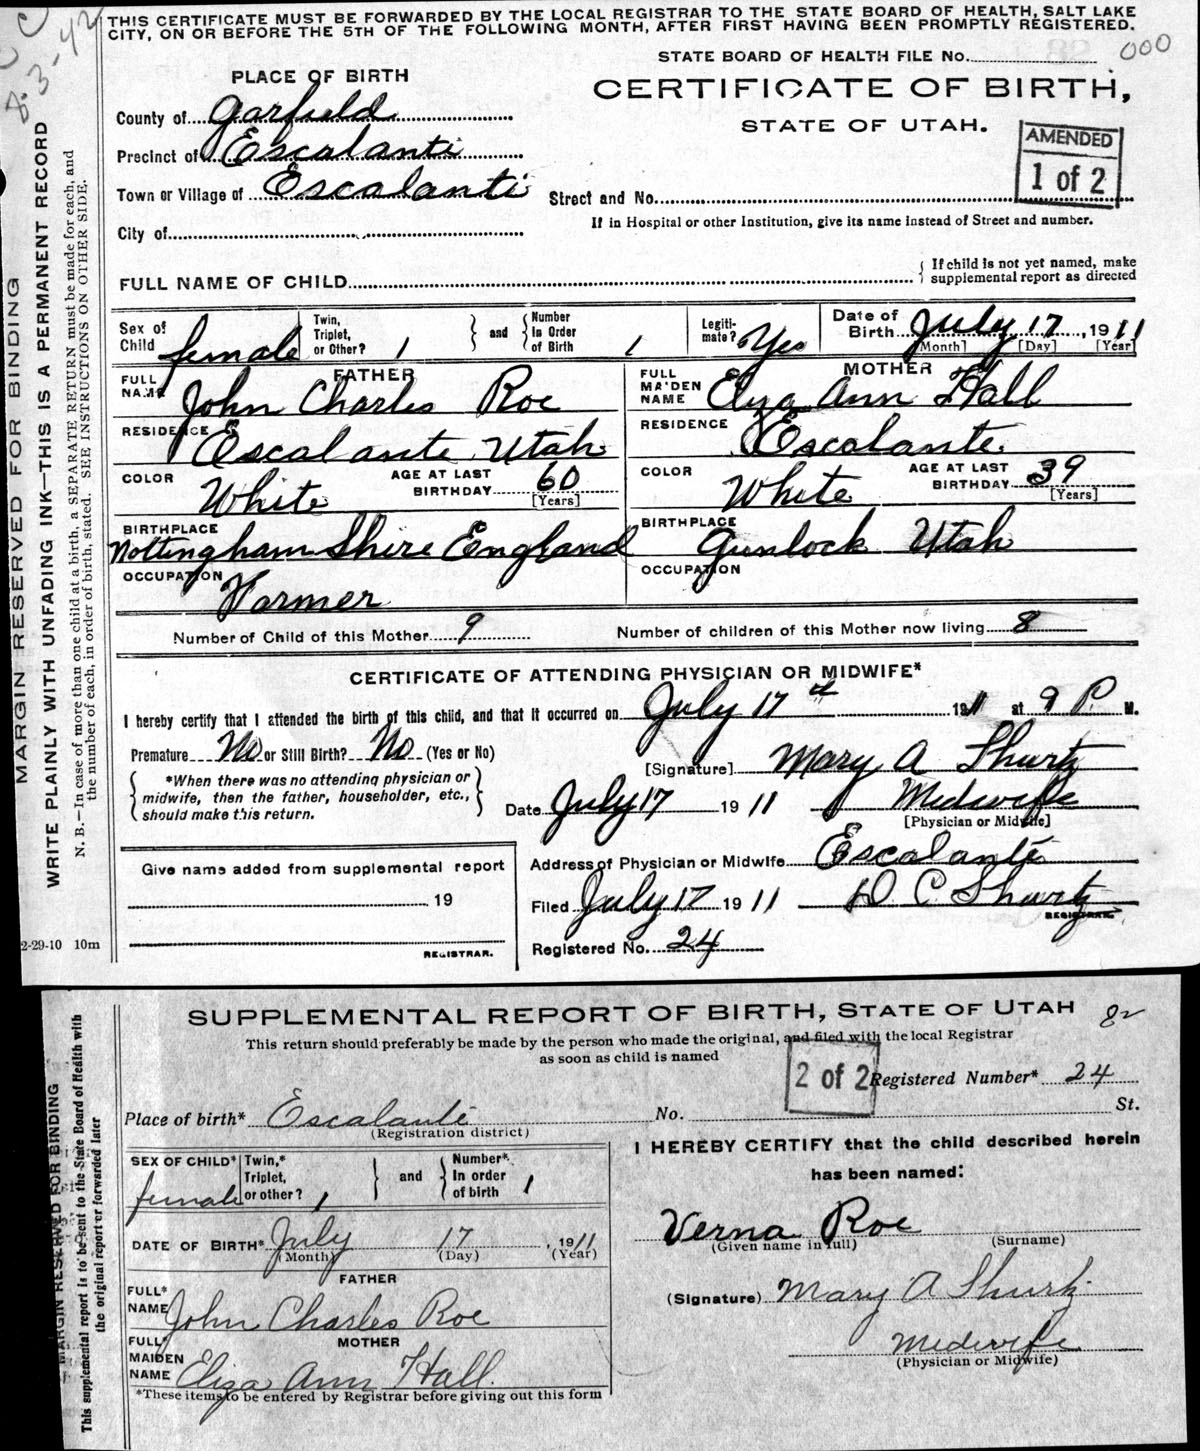 THIS CERTIFICATE MUST BE FORWARDED BY THE LOCAL REGISTRAR TO THE STATE BOARD OF HEALTH, SALT LAKE
CITY, ON OR BEFORE THE 5TH OF THE FOLLOWING MONTH, AFTER FIRST HAVING BEEN PROMPTLY REGISTERED.
8-3-42
STATE BOARD OF HEALTH FILE No. 000
PLACE OF BIRTH
CERTIFICATE OF BIRTH,
STATE OF UTAH.
AMENDED
1 of 2
County of Garfield
Precinct of Escalanti
Town or Village of Escalanti Street and No.
If in Hospital or other Institution, give its name instead of Street and number.
City of
FULL NAME OF CHILD { If child is not yet named, make
supplemental report as directed
Sex of Child female Twin, Triplet, or Other? 1 } and { Number In Order of Birth 1 Legiti-mate? Yes Date of Birth July 17, 1911
[Month] [Day] [Year]
FATHER MOTHER
FULL NAME John Charles Roe FULL MAIDEN NAME Eliza Ann Hall
RESIDENCE Escalante Utah RESIDENCE Escalante
COLOR White AGE AT LAST BIRTHDAY 60 [Years] COLOR White AGE AT LAST BIRTHDAY 39 [Years]
BIRTHPLACE Nottingham Shire England BIRTHPLACE Gunlock Utah
OCCUPATION Farmer OCCUPATION
Number of Child of this Mother 9 Number of children of this Mother now living 8
CERTIFICATE OF ATTENDING PHYSICIAN OR MIDWIFE*
I hereby certify that I attended the birth of this child, and that it occurred on July 17th 1911 at 9 P. M.
Premature No or Still Birth? No (Yes or No)
[Signature] Mary A Shurtz
{ *When there was no attending physician or
midwife, then the father, householder, etc.,
should make this return. }
Date July 17 1911 Midwife
[Physician or Midwife]
Address of Physician or Midwife Escalante
Give name added from supplemental report
19
REGISTRAR.
Filed July 17 1911 D C Shurtz
REGISTRAR
Registered No. 24
MARGIN RESERVED FOR BINDING
WRITE PLAINLY WITH UNFADING INK—THIS IS A PERMANENT RECORD
N. B.—In case of more than one child at a birth, a SEPARATE RETURN must be made for each, and
the number of each, in order of birth, stated. SEE INSTRUCTIONS ON OTHER SIDE.
2-29-10 10m
SUPPLEMENTAL REPORT OF BIRTH, STATE OF UTAH
82
This return should preferably be made by the person who made the original, and filed with the local Registrar
as soon as child is named
2 of 2
Registered Number* 24
Place of birth* Escalante No. St.
(Registration district)
SEX OF CHILD* female Twin,* Triplet, or other? 1 } and { Number* In order of birth 1
DATE OF BIRTH* July 17, 1911
(Month) (Day) (Year)
FATHER
FULL* NAME John Charles Roe
MOTHER
FULL* MAIDEN NAME Eliza Ann Hall.
*These items to be entered by Registrar before giving out this form
I HEREBY CERTIFY that the child described herein
has been named:
Verna Roe
(Given name in full) (Surname)
(Signature) Mary A Shurtz
Midwife
(Physician or Midwife)
MARGIN RESERVED FOR BINDING
This supplemental report is to be sent to the State Board of Health with
the original report or forwarded later